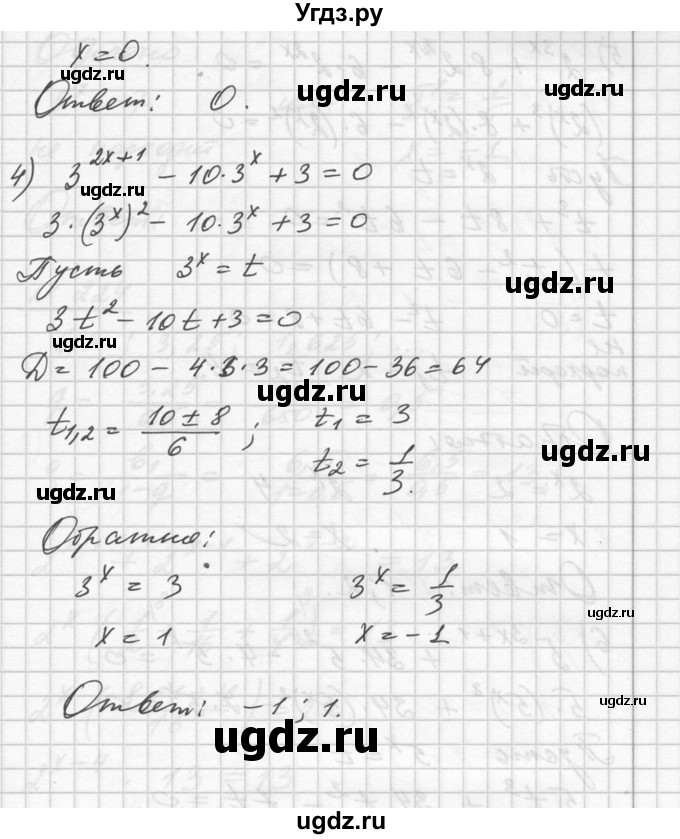 Угдз.ру
x = 0.
ugdz.ru
Ответ: 0.
ugdz.ru
4) 3^{2x+1} − 10·3^x + 3 = 0
ugdz.ru
3·(3^x)^2 − 10·3^x + 3 = 0
Пусть 3^x = t
ugdz.ru
3t^2 − 10t + 3 = 0
D = 100 − 4·3·3 = 100 − 36 = 64
ugdz.ru
t_{1,2} = \frac{10 ± 8}{6} ; t_1 = 3
t_2 = \frac{1}{3}.
ugdz.ru
ugdz.ru
Обратно:
3^x = 3 3^x = \frac{1}{3}
ugdz.ru
x = 1 x = −1
ugdz.ru
Ответ: −1; 1.
ugdz.ru
ugdz.ru